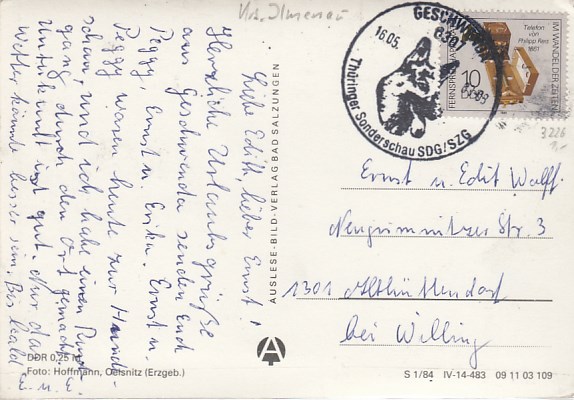 Krs. Ilmenau
Liebe Edith, lieber Ernst!
Herzliche Urlaubsgrüße
aus Geschwenda senden Euch
Peggy, Ernst u. Erika. Ernst u.
Peggy waren heute zur Hunde-
schau, und ich habe einen Rund-
gang durch den Ort gemacht.
Unterkunft ist gut. Nur das
Wetter könnte besser sein. Bis bald E. u. E.
AUSLESE-BILD-VERLAG BAD SALZUNGEN
DDR 0,25 M
Foto: Hoffmann, Oelsnitz (Erzgeb.)
GESCHWENDA
6307
16.05.
Thüringer Sonderschau SDG/SZG
Telefon
von
Philipp Reis
1861
10
DDR
IM WANDEL DER ZEITEN
3226
Ernst u. Edit Wolff
Neugrimnitzer Str. 3
1301 Althüttendorf
bei
A
S 1/84 IV-14-483 09 11 03 109